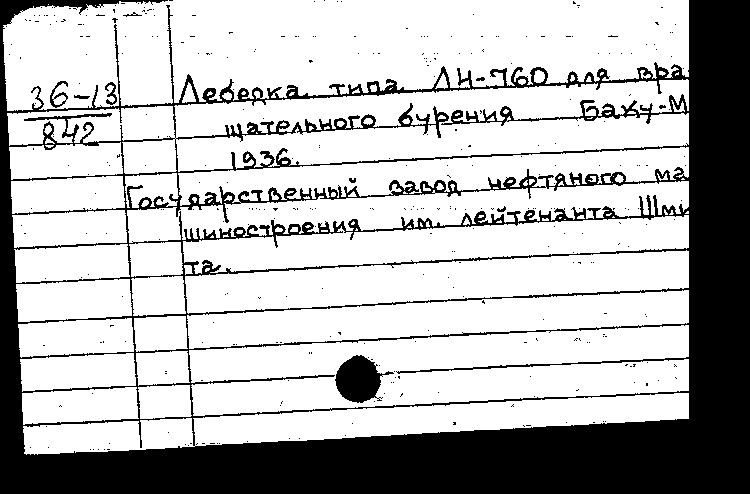 36-13
842
Лебедка типа ЛН-760 для вра
щательного бурения Баку-М
1936.
Государственный завод нефтяного ма
шиностроения им. лейтенанта Шми
та.